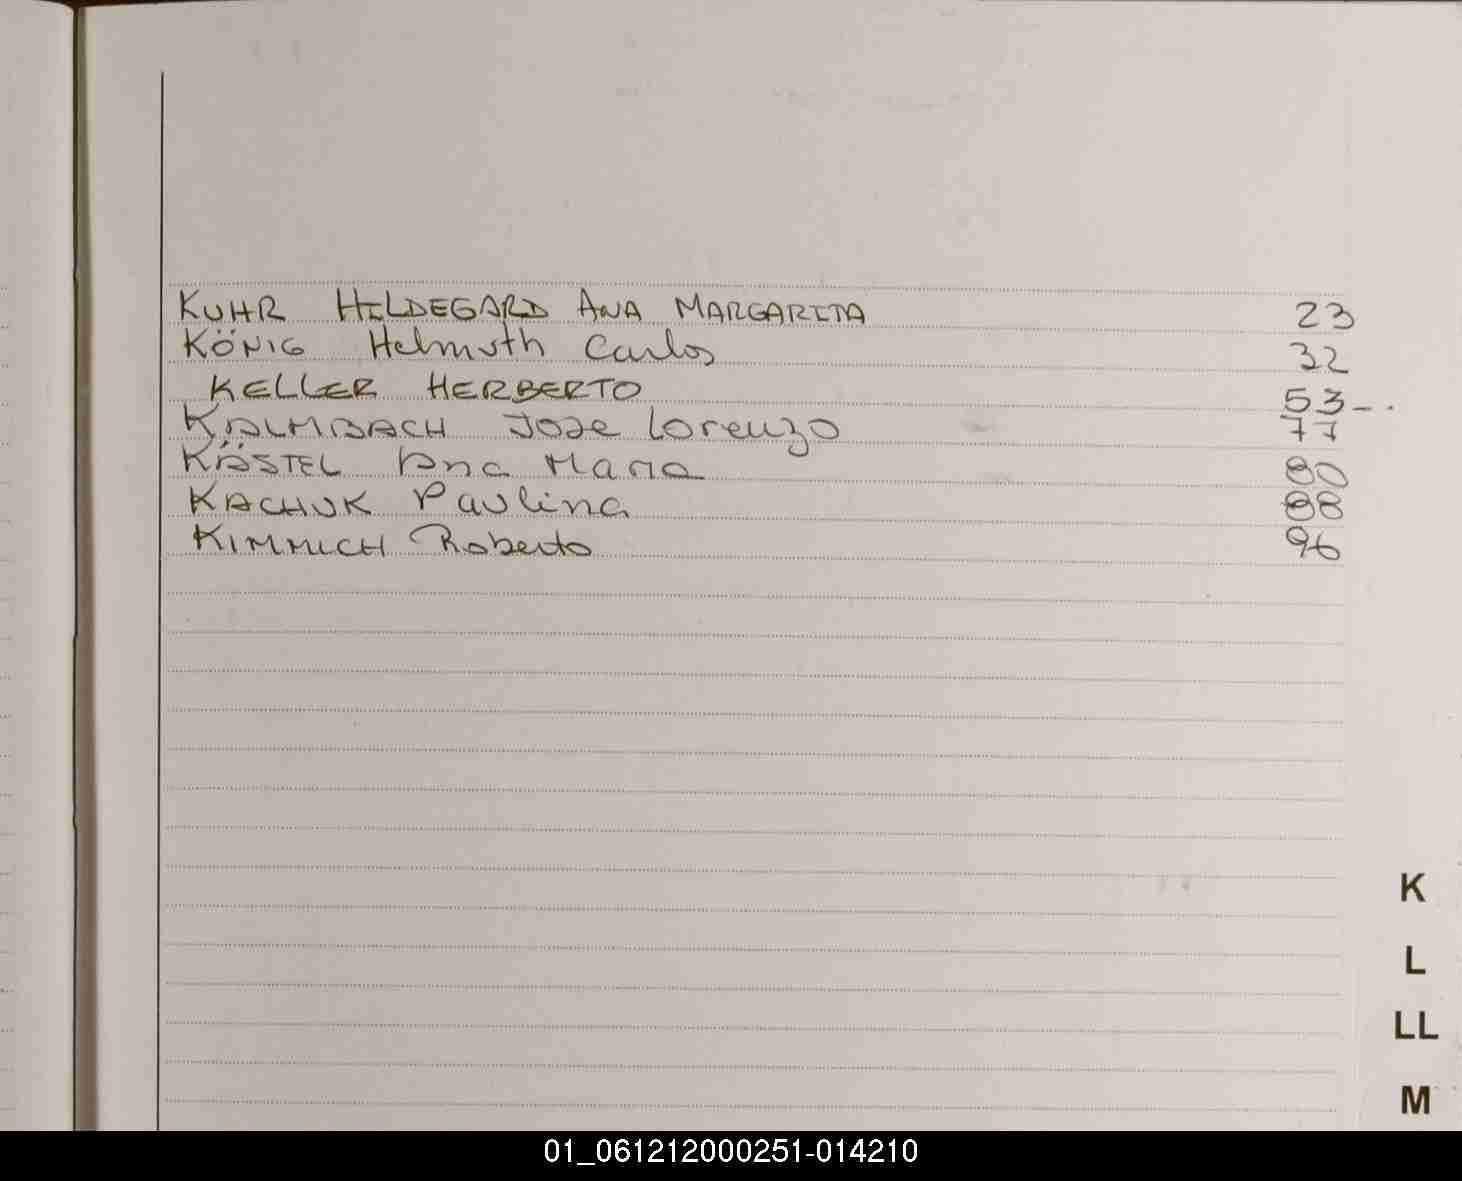 KUHR HILDEGARD ANA MARGARITA 23
KÖNIG Helmuth Carlos 32
KELLER HERBERTO 53-.
KALMBACH Jose Lorenzo 77
KÄSTEL Ana Maria 80
KACHUK Paulina 88
KIMMICH Roberto 96
K
L
LL
M
01_061212000251-014210